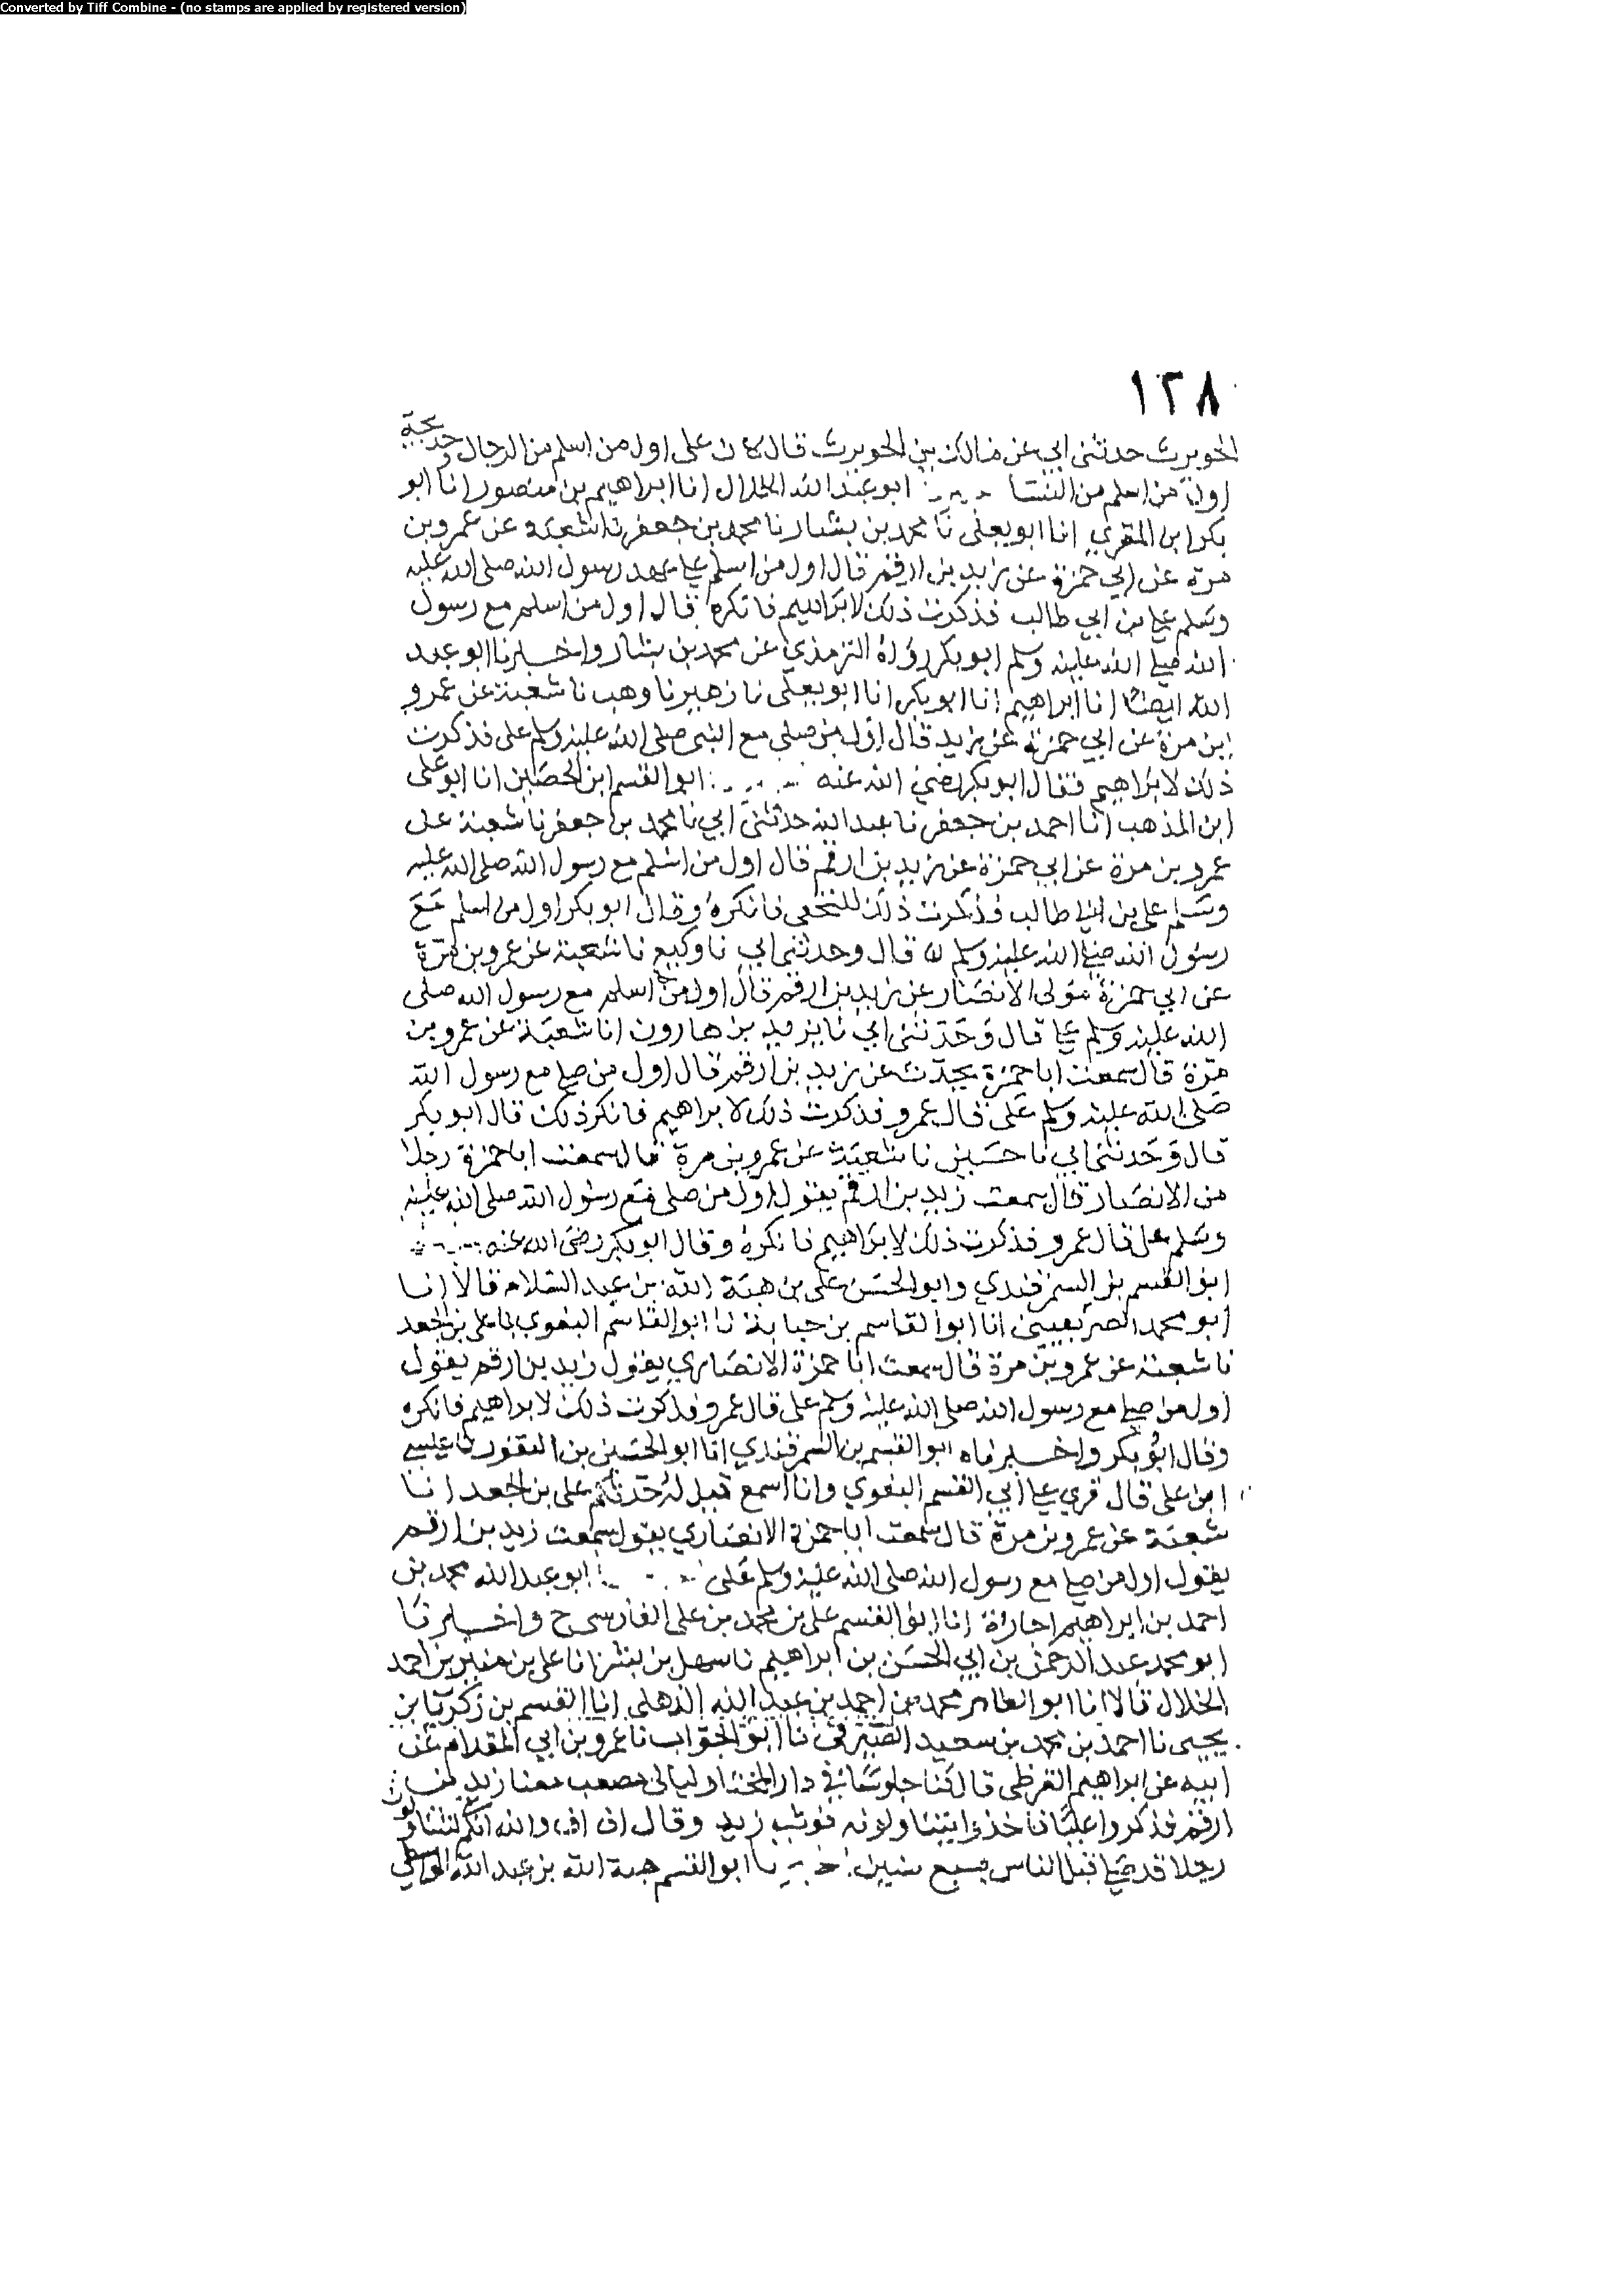 Converted by Tiff Combine - (no stamps are applied by registered version)
١٢٨
الحويرث حدثني ابي عن مالك بن الحويرث قال كان علي اول من اسلم من الرجال وخديجة
اول من اسلم من النسا ابو عبد الله الخلال انا ابراهيم بن منصور انا ابو
بكر ابن المقري انا ابو يعلى نا محمد بن بشار نا محمد بن جعفر نا شعبة عن عمرو بن
مرة عن ابي حمزة عن زيد بن ارقم قال اول من اسلم على عهد رسول الله صلى الله عليه
وسلم علي بن ابي طالب فذكرت ذلك لابراهيم فانكره قال اول من اسلم مع رسول
الله صلى الله عليه وسلم ابو بكر رواه الترمذي عن محمد بن بشار واخبرنا ابو عبد
الله ايضا انا ابراهيم انا ابو بكر انا ابو يعلى نا زهير نا وهب نا شعبة عن عمرو
ابن مرة عن ابي حمزة عن زيد قال اول من صلى مع النبي صلى الله عليه وسلم علي فذكرت
ذلك لابراهيم فقال ابو بكر رضي الله عنه ابو القسم ابن الحصين انا ابو علي
ابن المذهب انا احمد بن جعفر نا عبد الله حدثني ابي نا محمد بن جعفر نا شعبة عن
عمرو بن مرة عن ابي حمزة عن زيد بن ارقم قال اول من اسلم مع رسول الله صلى الله عليه
وسلم علي بن ابي طالب فذكرت ذلك للنخعي فانكره وقال ابو بكر اول من اسلم مع
رسول الله صلى الله عليه وسلم قال وحدثني ابي نا وكيع نا شعبة عن عمرو بن مرة
عن ابي حمزة مولى الانصار عن زيد بن ارقم قال اول من اسلم مع رسول الله صلى
الله عليه وسلم علي قال وحدثني ابي نا يزيد بن هارون انا شعبة عن عمرو بن
مرة قال سمعت ابا حمزة يحدث عن زيد بن ارقم قال اول من صلى مع رسول الله
صلى الله عليه وسلم علي قال عمرو فذكرت ذلك لابراهيم فانكر ذلك قال ابو بكر
قال وحدثني ابي نا حسين نا شعبة عن عمرو بن مرة قال سمعت ابا حمزة رجلا
من الانصار قال سمعت زيد بن ارقم يقول اول من صلى مع رسول الله صلى الله عليه
وسلم علي قال عمرو فذكرت ذلك لابراهيم فانكره وقال ابو بكر رضي الله عنه
ابو القسم بن السمرقندي وابو الحسن علي بن هبة الله بن عبد السلام قالا انا
ابو محمد الصريفيني انا ابو القاسم بن حبابة نا ابو القاسم البغوي نا علي بن الجعد
نا شعبة عن عمرو بن مرة قال سمعت ابا حمزة الانصاري يقول زيد بن ارقم يقول
اول من صلى مع رسول الله صلى الله عليه وسلم علي قال عمرو فذكرت ذلك لابراهيم فانكره
وقال ابو بكر واخبرناه ابو القسم بن السمرقندي انا ابو الحسين بن النقور نا عيسى
ابن علي قال قري على ابي القسم البغوي وانا اسمع قيل له حدثكم علي بن الجعد انا
شعبة عن عمرو بن مرة قال سمعت ابا حمزة الانصاري يقول سمعت زيد بن ارقم
يقول اول من صلى مع رسول الله صلى الله عليه وسلم علي ابو عبد الله محمد بن
احمد بن ابراهيم اجازة انا ابو القسم علي بن محمد بن علي الفارسي ح واخبرنا
ابو محمد عبد الرحمن بن ابي الحسن بن ابراهيم نا سهل بن بشر انا علي بن منير بن احمد
الخلال قالا انا ابو الطاهر محمد بن احمد بن عبد الله الذهلي انا القسم بن زكريا بن
يحيى نا احمد بن محمد بن سعيد الصيرفي نا ابو الجواب نا عمرو بن ابي المقدام عن
ابيه عن ابراهيم القرظي قال كنا جلوسا في دار المختار ليالي مصعب معنا زيد بن
ارقم فذكروا عليا فاخذوا يتناولونه فوثب زيد وقال اف اف والله انكم لتتناولون
رجلا قد صلى قبل الناس بسبع سنين اخبرنا ابو القسم هبة الله بن عبد الله الواسطي